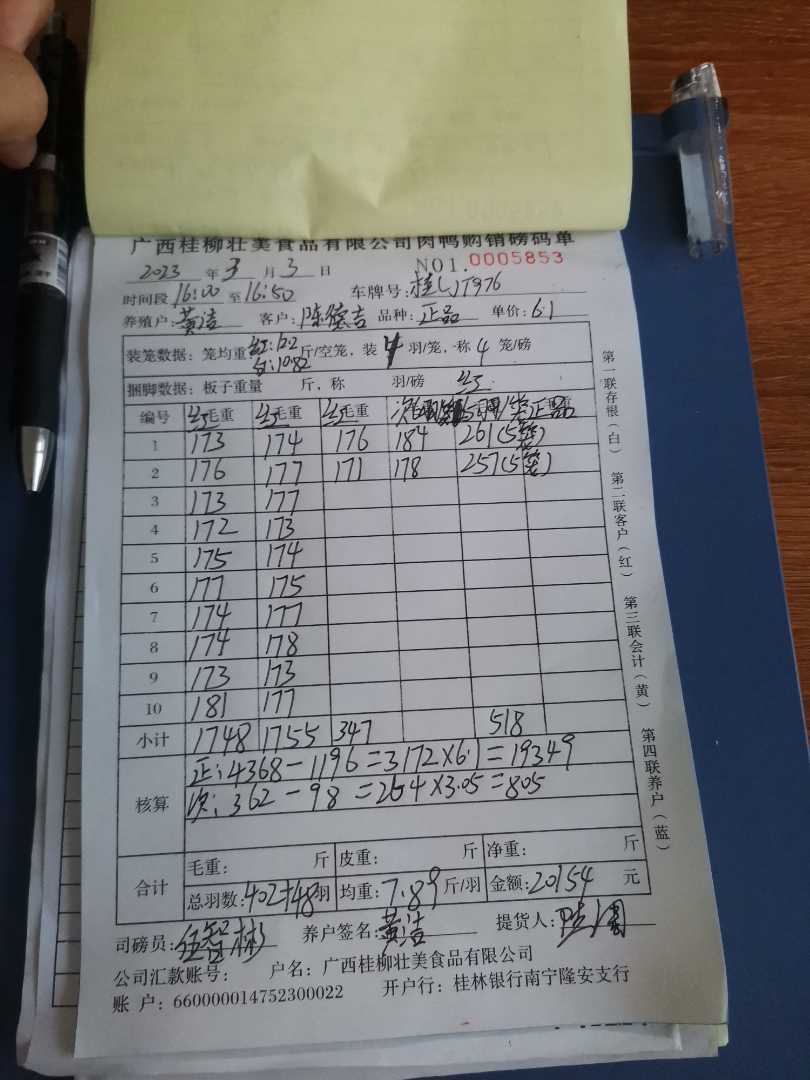 广西桂柳壮美食品有限公司肉鸭购销磅码单
2023 年 3 月 3 日 NO1.0005853
时间段 16:00 至 16:50 车牌号: J7976
养殖户: 黄洁 客户: 陈德吉 品种: 正品 单价: 6.1
装笼数据: 笼均重 红:12.2 斤/空笼, 装 羽/笼, 称 4 笼/磅
10.82
捆脚数据: 板子重量 斤, 称 羽/磅 红
编号 红毛重 红毛重 红毛重 次 正品
1 173 174 176 184 261(5笼)
2 176 177 171 178 257(5笼)
3 173 177
4 172 173
5 175 174
6 177 175
7 174 177
8 174 178
9 173 173
10 181 177
小计 1748 1755 347 518
核算 正:4368-1196=3172×6.1=19349
次:362-98=264×3.05=805
合计 毛重: 斤 皮重: 斤 净重: 斤
总羽数:402+48羽 均重:7.89斤/羽 金额:20154 元
司磅员:伍智彬 养户签名:黄洁 提货人:
公司汇款账号: 户名: 广西桂柳壮美食品有限公司
账 户: 660000014752300022 开户行: 桂林银行南宁隆安支行
第一联存根(白) 第二联客户(红) 第三联会计(黄) 第四联养户(蓝)